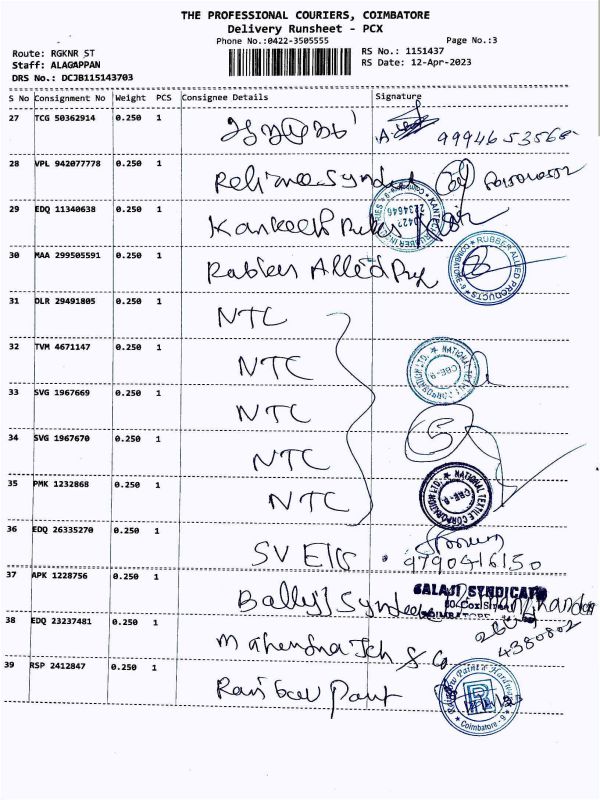 THE PROFESSIONAL COURIERS, COIMBATORE
Delivery Runsheet - PCX
Phone No.:0422-3505555
Page No.:3
Route: RGKNR ST
RS No.: 1151437
Staff: ALAGAPPAN
RS Date: 12-Apr-2023
DRS No.: DCJB115143703
S No Consignment No Weight PCS Consignee Details Signature
27 TCG 50362914 0.250 1
9994653568
28 VPL 942077778 0.250 1 Reliance
29 EDQ 11340638 0.250 1
30 MAA 299505591 0.250 1 Allied
RUBBER ALLIED PRODUCTS
31 DLR 29491805 0.250 1 NTC
32 TVM 4671147 0.250 1 NTC
NATIONAL TEXTILE CORPORATION LTD. CBE-9.
33 SVG 1967669 0.250 1 NTC
34 SVG 1967670 0.250 1 NTC
5
35 PMK 1232868 0.250 1 NTC
NATIONAL TEXTILE CORPORATION LTD. CBE-9.
36 EDQ 26335270 0.250 1 SV
9790416150
37 APK 1228756 0.250 1
BALAJI SYNDICATE
COIMBATORE
38 EDQ 23237481 0.250 1 Mahendra Tch & Co
4380802
39 RSP 2412847 0.250 1 Rainbow Paint
Rainbow Paint & Hardware
Coimbatore - 9